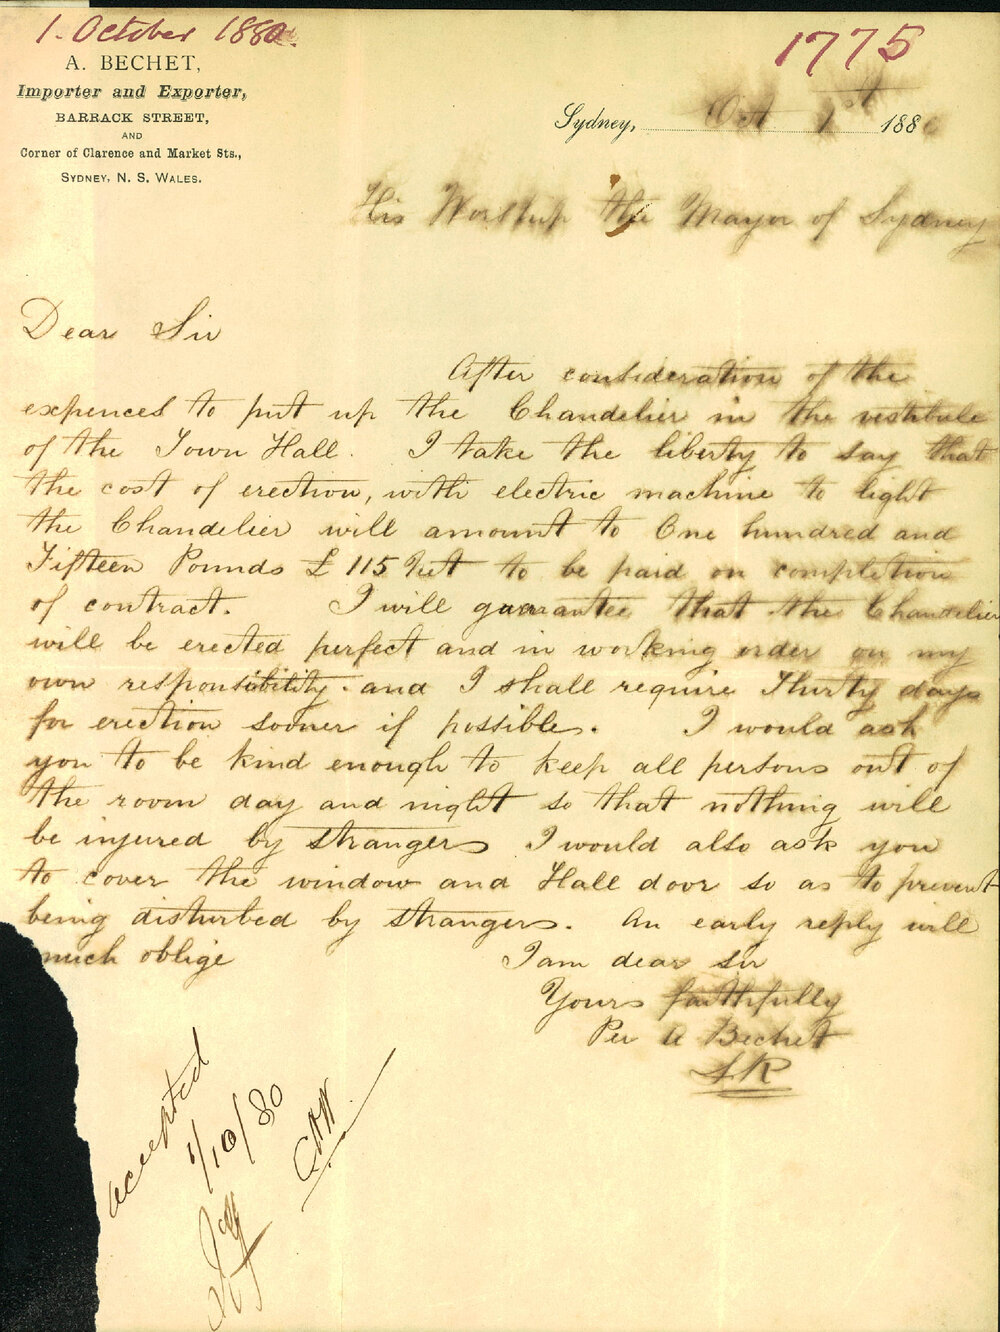 1. October 1880.
1775
A. BECHET,
Importer and Exporter,
BARRACK STREET,
AND
Corner of Clarence and Market Sts.,
SYDNEY, N. S. WALES.
Sydney, Oct 1st 1880
His Worship the Mayor of Sydney
Dear Sir
After consideration of the
expences to put up the Chandelier in the vestibule
of the Town Hall. I take the liberty to say that
the cost of erection, with electric machine to light
the Chandelier will amount to One hundred and
Fifteen Pounds £115 Net to be paid on completion
of contract. I will guarantee that the Chandelier
will be erected perfect and in working order on my
own responsibility. and I shall require Thirty days
for erection sooner if possible. I would ask
you to be kind enough to keep all persons out of
the room day and night so that nothing will
be injured by strangers I would also ask you
to cover the window and Hall door so as to prevent
being disturbed by strangers. An early reply will
much oblige I am dear sir
Yours faithfully
Per A Bechet
accepted
1/10/80